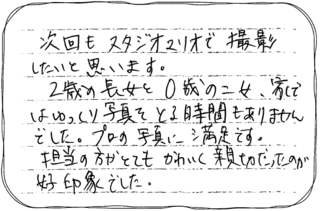 次回も スタジオマリオで 撮影
したいと 思います。
2歳の長女と 0歳の二女、家で
はゆっくり写真をとる時間もありません
でした。プロの写真に満足です。
担当の方がとても かわいく 親切だったのが
好印象でした。